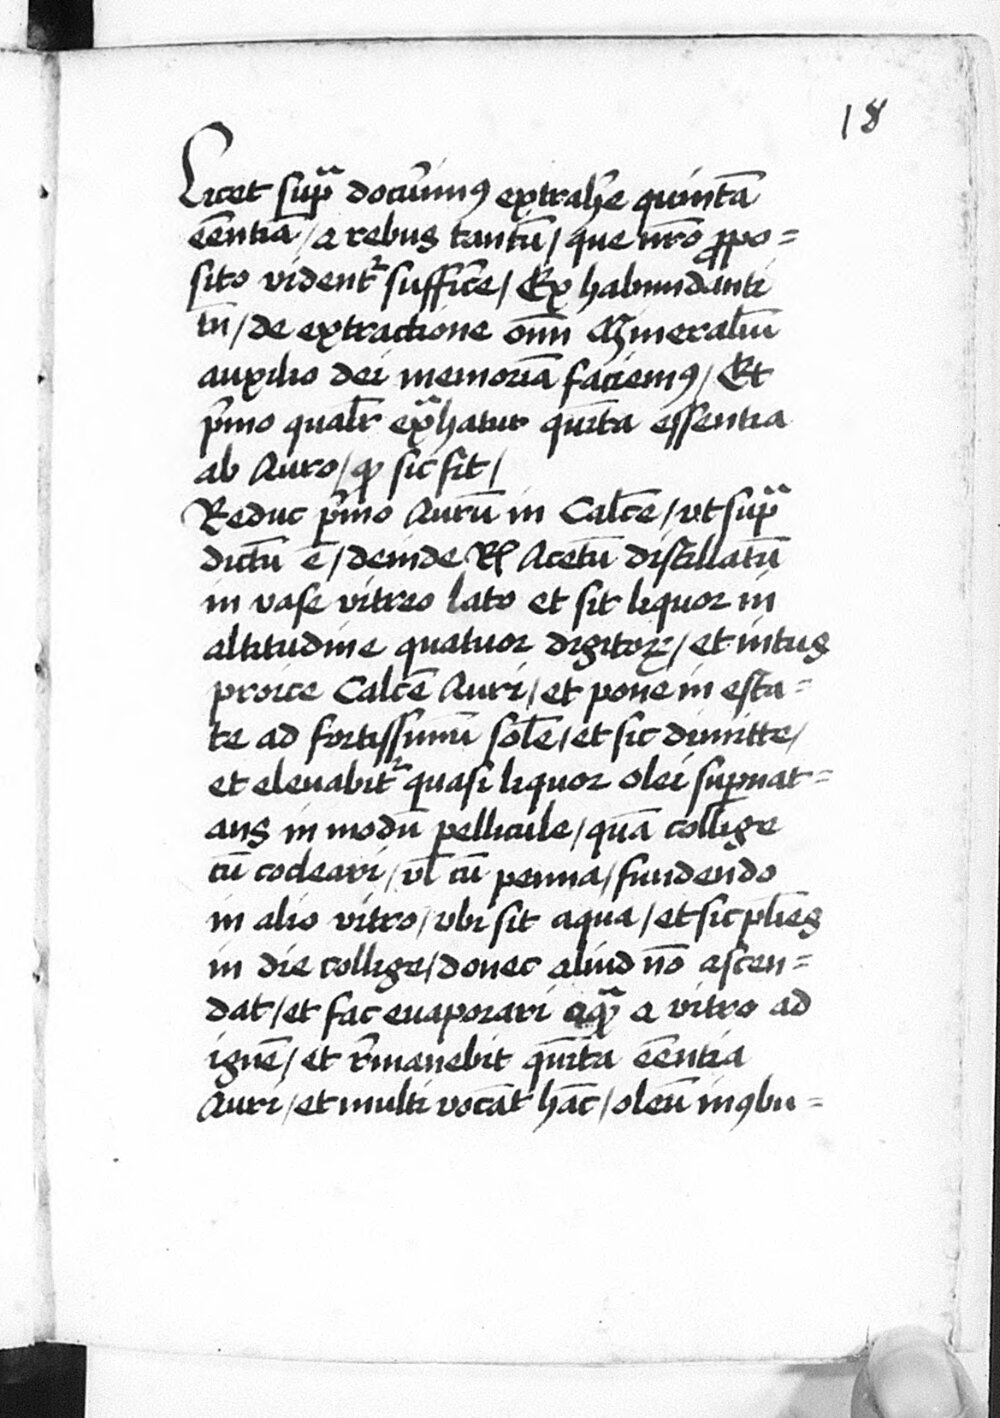 18
Licet sup̄ᵃ docuim̄ꝰ extrah̄e quintā
eēntia / a rebus tantū / que nr̄o ꝓpo=
sito vident᷑ suffic̄e / Ex habundanti
tn̄ / de extractione om̄i Mineraliū
auxilio dei memoriā faciemꝰ / Et
p̄mo qualr̄ exᵃhatur qui̅ta essentia
ab Auro / ꝙ sic fit /
Reduc p̄mo Aurū in Calc̄e / vt sup̄ᵃ
dictū ē / deinde ℞ Acetū distillatū
in vase vitreo lato et sit liquor in
altitudine quatuor digitoꝝ / et intus
proice Calcē Auri / et pone in esta=
te ad fortissimū solē / et sic dimitte /
et eleuabit᷑ quasi liquor olei sup̄nat=
ans in modū pellicule / quā collige
cū cocleari / vl̄ cū penna / fundendo
in alio vitro / vbi sit aqua / et sic pl̄ies
in die collige / donec aliud nō ascen=
dat / et fac euaporari aqᵃ a vitro ad
ignē / et r̄manebit qui̅ta eēntia
Auri / et multi vocāt hāc / oleū inꝯbu=